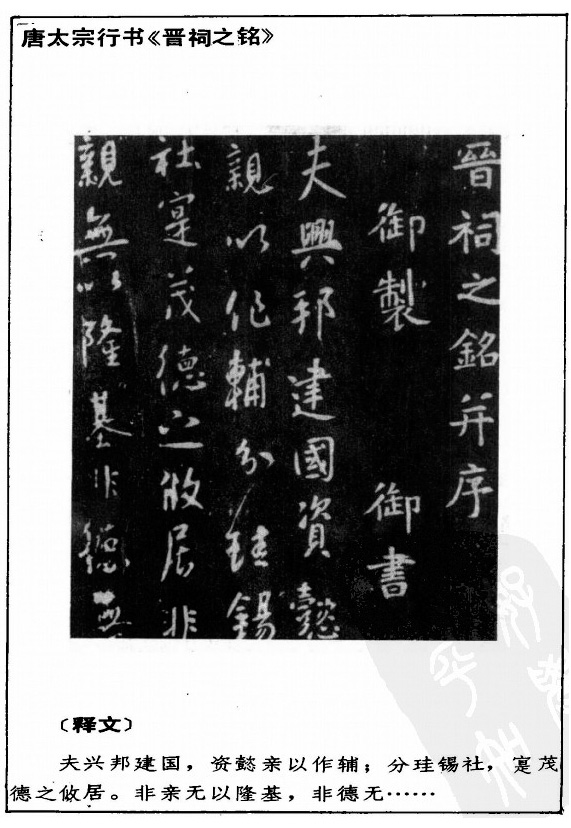 唐太宗行书《晋祠之铭》
晉祠之銘并序
御製　御書
夫興邦建國資懿
親以作輔分珪錫
社寔茂德之攸居非
親無以隆基非德無
〔释文〕
夫兴邦建国，资懿亲以作辅；分珪锡社，寔茂
德之攸居。非亲无以隆基，非德无……